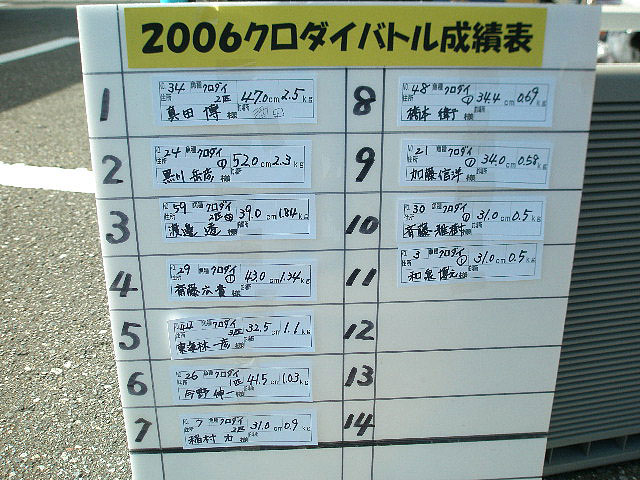 2006クロダイバトル成績表
1
NO. 34 魚種 クロダイ 2匹 47.0cm 2.5kg
住所 真田 博 様
2
NO. 24 魚種 クロダイ ① 52.0cm 2.3kg
住所 黒川 岳彦 様
3
NO. 59 魚種 クロダイ 2匹 39.0cm 1.84kg
住所 渡邉 透 様
4
NO. 29 魚種 クロダイ ① 43.0cm 1.34kg
住所 斎藤 広貴 様
5
NO. 44 魚種 クロダイ 3匹 32.5cm 1.1kg
東海林 一彦 様
6
NO. 26 魚種 クロダイ 1匹 41.5cm 1.03kg
住所 今野 伸一 様
7
NO. 7 魚種 クロダイ 2匹 31.0cm 0.9kg
住所 稲村 力 様
8
NO. 48 魚種 クロダイ ① 34.4cm 0.69kg
住所 橋本 衛 様
9
NO. 21 魚種 クロダイ ① 34.0cm 0.58kg
住所 加藤 信洋 様
10
NO. 30 魚種 クロダイ ① 31.0cm 0.5kg
住所 斉藤 雅樹 様
11
NO. 3 魚種 クロダイ ① 31.0cm 0.5kg
住所 和泉 博元 様
12
13
14